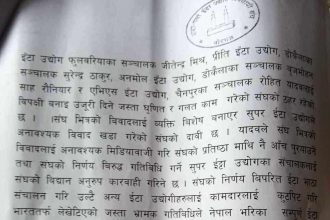 ईटा उद्योग फुलवरियाका सञ्चालक जीतेन्द्र मिश्र, प्रीति ईटा उद्योग, डोकैलाका
सञ्चालक सुरेन्द्र ठाकुर, अनमोल ईटा उद्योग, डोकैलाका सञ्चालक बृजमोहन
साह रौनियार र एभिएस ईटा उद्योग, चैनपुरका सञ्चालक रोहित यादवलाई
विपक्षी बनाइ उजुरी दिने जस्ता घृणित र गलत काम गरेको संघको ठहर रहेको
छ । संघ भित्रको विवादलाई व्यक्ति विशेष बनाएर सुपर ईटा उद्योगले
अनावश्यक विवाद खडा गरेको संघको दावी छ । यादवले संघ भित्रको
विवादलाई अनावश्यक मिडियाबाजी गरि संघको प्रतिष्ठा माथि नै आँच पुर्‍याउने
तथा संघको निर्णय विरुद्ध गतिविधि गर्ने सुपर ईटा उद्योगका संचालकलाई
संघको विधान अनुरुप कारवाही गरिने छ । संघको निर्णय विपरित ईटा भाठा
संचालन गरि उल्टै अन्य ईटा उद्योगीहरुलाई कामदारलाई कुटपिट गरि
भारततर्फ लखेटिएको जस्ता भ्रामक गतिविधिले नेपाल भरिका सम्पूर्ण